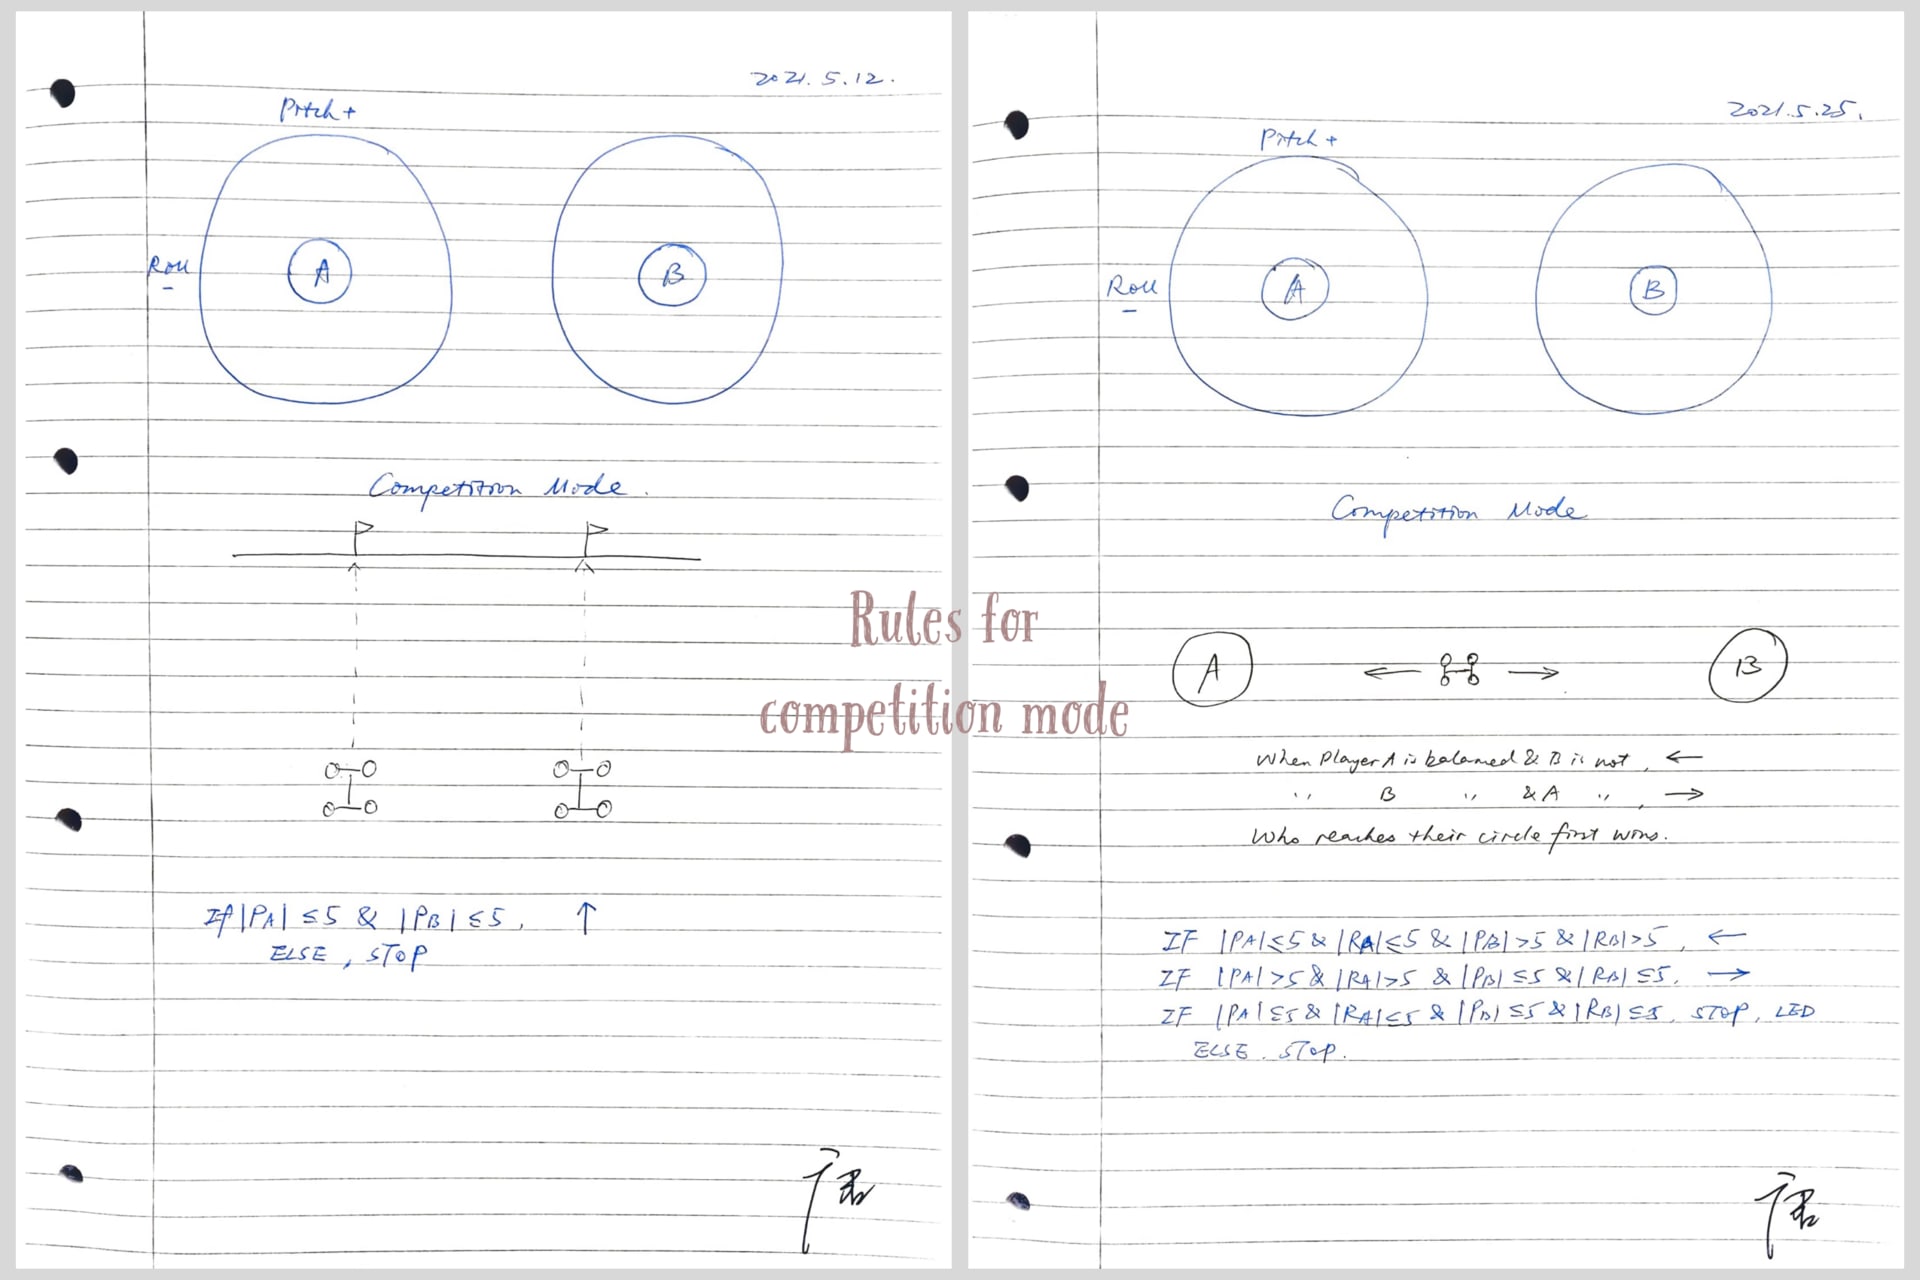 2021.5.12.
Pitch+
Roll
-
A
B
Competition Mode.
If |PA| ≤5 & |PB| ≤5, ↑
ELSE, STOP
Rules for
competition mode
2021.5.25.
Pitch+
Roll
-
A
B
Competition Mode
A ← → B
When Player A is balanced & B is not, ←
〃 B 〃 & A 〃, →
Who reaches their circle first wins.
IF |PA|≤5 & |RA|≤5 & |PB|>5 & |RB|>5, ←
IF |PA|>5 & |RA|>5 & |PB|≤5 & |RB|≤5, →
IF |PA|≤5 & |RA|≤5 & |PB|≤5 & |RB|≤5, STOP, LED
ELSE. STOP.